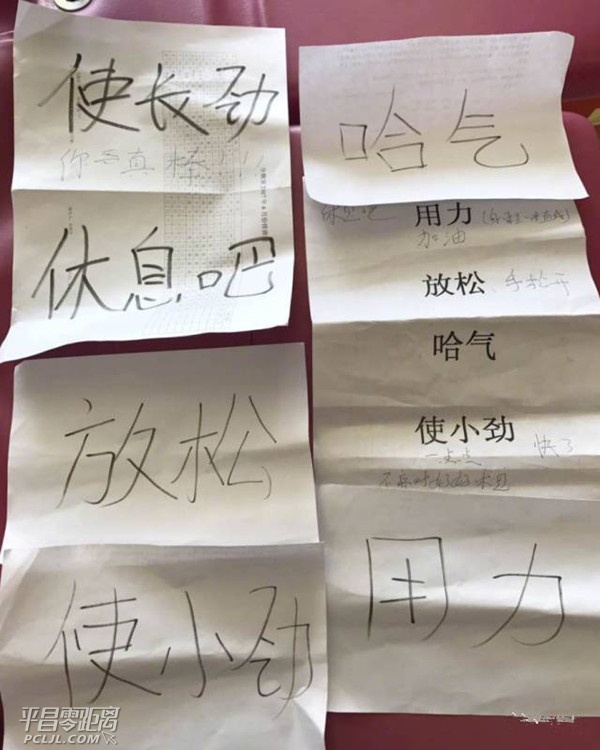 使长劲
你云真棒!!!
休息吧
放松
使小劲
哈气
休息吧 用力
加油
放松 手松开
哈气
使小劲
一点点 快了
不疼时好好休息
用力
平昌零距离
PCLJL.COM